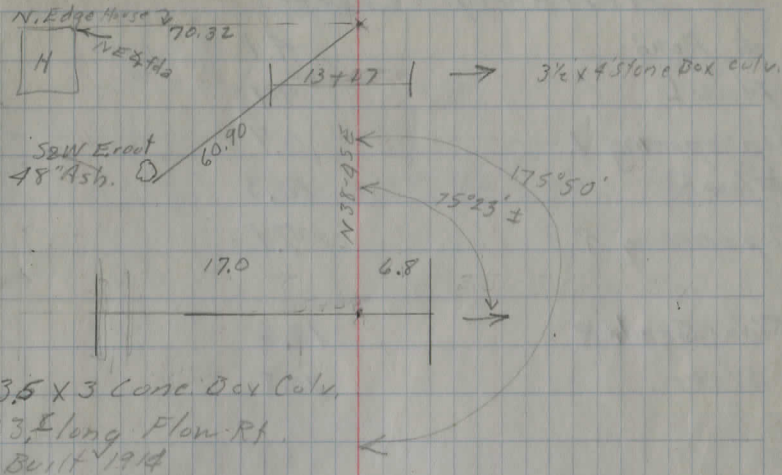 N. Edge House
70.32
H
13+27
3½ x 4 Stone Box Culv.
S&W E root
48" Ash.
60.90
N38-45E
175°50'
75°23' ±
17.0
6.8
3.5 x 3 Conc. Box Culv.
long Flow Rt.
Built 1914